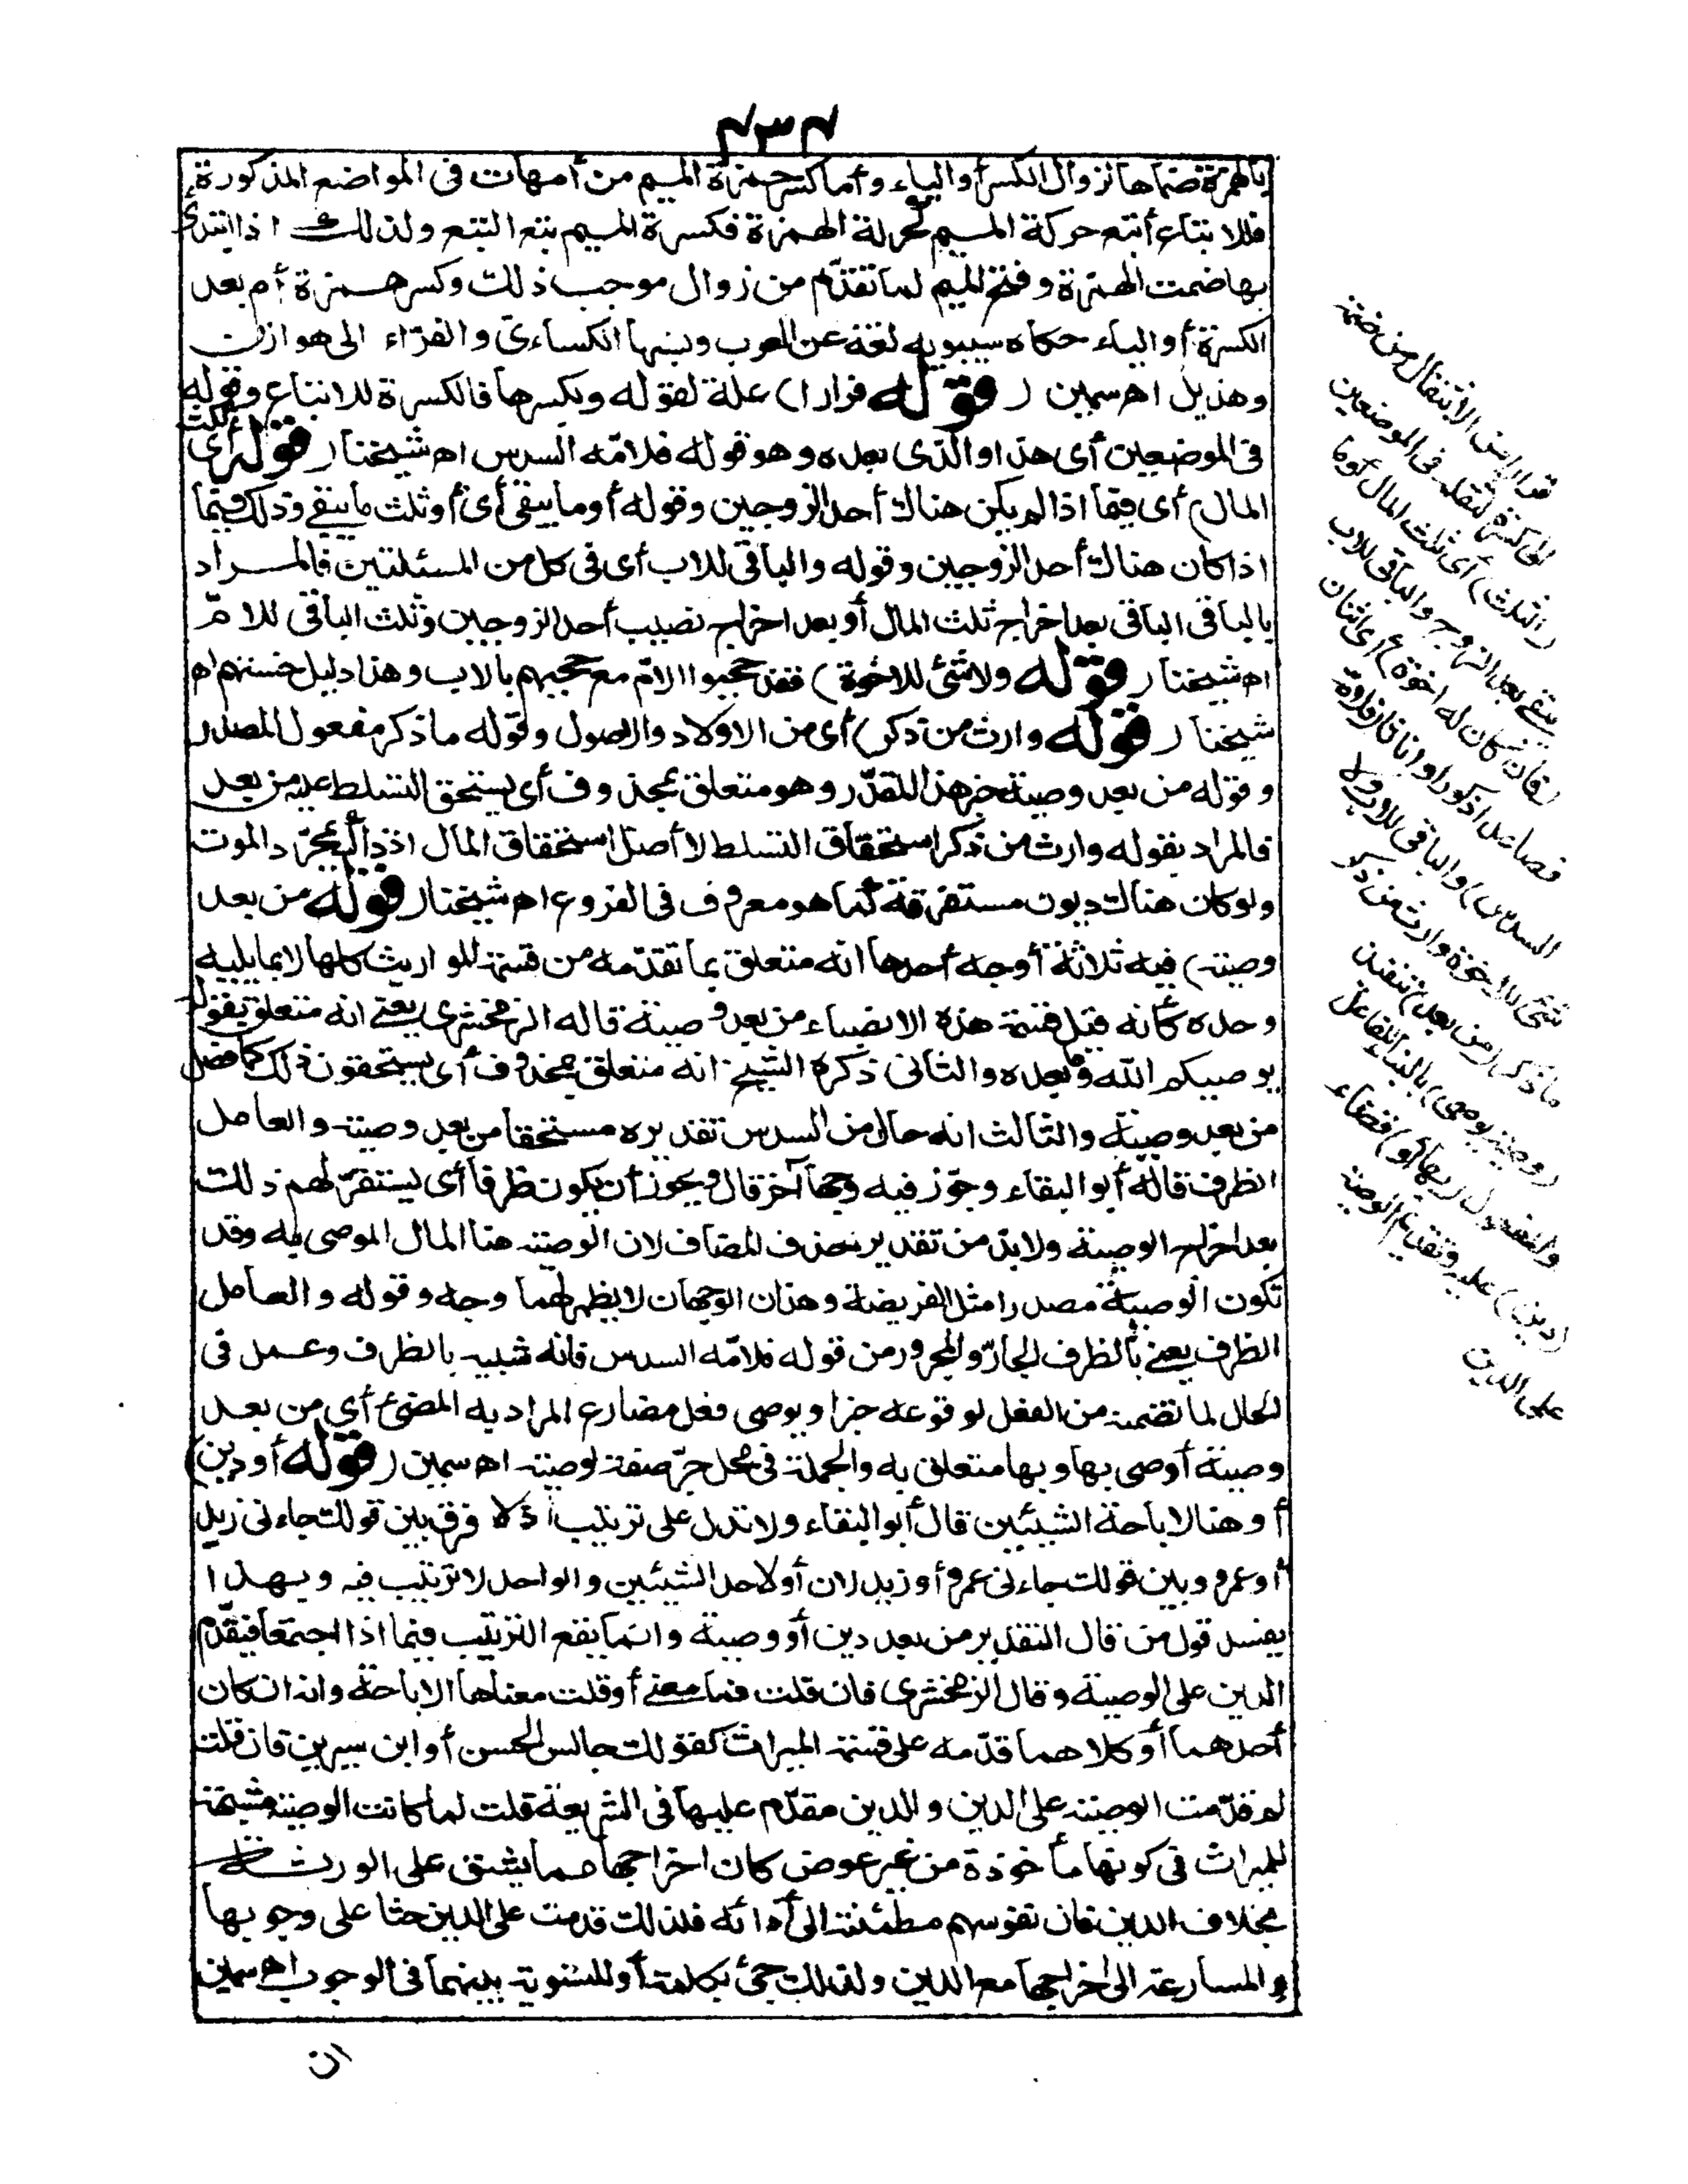 ٤٣٤
بالهمزة ضمها لزوال الكسر أو الياء وأما كسر حمزة الميم من أمهات فى المواضع المذكورة
فللاتباع أتبع حركة الميم لحركة الهمزة فكسرة الميم تبع التبع ولذلك اذا ابتدئ
بها ضمت الهمزة وفتح الميم لما تقدّم من زوال موجب ذلك وكسر همزة أم بعد
الكسرة أو الياء حكاه سيبويه لغة عن العرب ونسبها الكساءى والفرّاء الى هوازن
وهذيل اه سمين (قوله فرارا) علة لقوله وبكسرها فالكسرة للاتباع وقوله
فى الموضعين أى هذا والذى بعده وهو قوله فلامّه السدس اه شيخنا (قوله أى ثلث
المال) أى فيما اذا لم يكن هناك أحد الزوجين وقوله أو ما يبقى أى أو ثلث ما يبقى وذلك فيما
اذا كان هناك أحد الزوجين وقوله والباقى للاب أى فى كل من المسئلتين فالمراد
بالباقى الباقى بعد اخراج ثلث المال أو بعد اخراج نصيب أحد الزوجين وثلث الباقى للامّ
اه شيخنا (قوله ولا شئ للاخوة) فقد حجبوا الامّ مع حجبهم بالاب وهذا دليل خستهم اه
شيخنا (قوله وارث من ذكر) أى من الاولاد والاصول وقوله ما ذكر مفعول المصدر
وقوله من بعد وصية خبر هذا المقدّر وهو متعلق بمحذوف أى يستحق التسلط عليه من بعد
فالمراد بقوله وارث من ذكر استحقاق التسلط لا أصل استحقاق المال اذ ذاك بمجرّد الموت
ولو كان هناك ديون مستغرقة كما هو معروف فى الفروع اه شيخنا (قوله من بعد
وصية) فيه ثلاثة أوجه أحدها انه متعلق بما تقدّمه من قسمة المواريث كلها لا بما يليه
وحده كأنه قيل قسمة هذه الانصباء من بعد وصية قاله الزمخشرى يعنى انه متعلق بقوله
يوصيكم الله وما بعده والثانى ذكره الشيخ انه متعلق بمحذوف أى يستحقون ذلك كما فصل
من بعد وصية والثالث انه حال من السدس تقديره مستحقا من بعد وصية والعامل
الظرف قاله أبو البقاء وجوّز فيه وجها آخر قال ويجوز أن يكون ظرفا أى يستقرّ لهم ذلك
بعد اخراج الوصية ولا بدّ من تقدير حذف المضاف لان الوصية هنا المال الموصى به وقد
تكون الوصية مصدرا مثل الفريضة وهذان الوجهان لا يظهر لهما وجه وقوله والعامل
الظرف يعنى بالظرف الجارّ والمجرور من قوله فلامّه السدس فانه شبيه بالظرف وعمل فى
الحال لما تضمنه من الفعل لوقوعه خبرا ويوصى فعل مضارع المراد به المضى أى من بعد
وصية أوصى بها وبها متعلق به والجملة فى محل جرّ صفة لوصية اه سمين (قوله أو دين)
أو هنا لاباحة الشيئين قال أبو البقاء ولا تدل على ترتيب اذ لا فرق بين قولك جاءنى زيد
أو عمرو وبين قولك جاءنى عمرو أو زيد لان أو لاحد الشيئين والواحد لا ترتيب فيه وبهذا
يفسد قول من قال التقدير من بعد دين أو وصية وانما يقع الترتيب فيما اذا اجتمعا فيقدّم
الدين على الوصية وقال الزمخشرى فان قلت فما معنى أو قلت معناها الاباحة وانه ان كان
أحدهما أو كلاهما قدّم على قسمة الميراث كقولك جالس الحسن أو ابن سيرين فان قلت
لم قدّمت الوصية على الدين والدين مقدّم عليها فى الشريعة قلت لما كانت الوصية مشبهة
للميراث فى كونها مأخوذة من غير عوض كان اخراجها مما يشق على الورثة
بخلاف الدين فان نفوسهم مطمئنة الى أدائه فلذلك قدمت على الدين حثا على وجوبها
والمسارعة الى اخراجها مع الدين ولذلك جئ بكلمة أو للتسوية بينهما فى الوجوب اه سمين
ان
فرارا من الانتقال من ضمة
الى كسرة لثقله فى الموضعين
(الثلث) أى ثلث المال أو ما
يبقى بعد الزوج والباقى للاب
(فان كان له اخوة) أى اثنان
فصاعدا ذكورا أو اناثا (فلامّه
السدس) والباقى للاب ولا
شئ للاخوة وارث من ذكر
ما ذكر (من بعد) تنفيذ
(وصية يوصى) بالبناء للفاعل
والمفعول (بها أو) قضاء
(دين) عليه وتقديم الوصية
على الدين